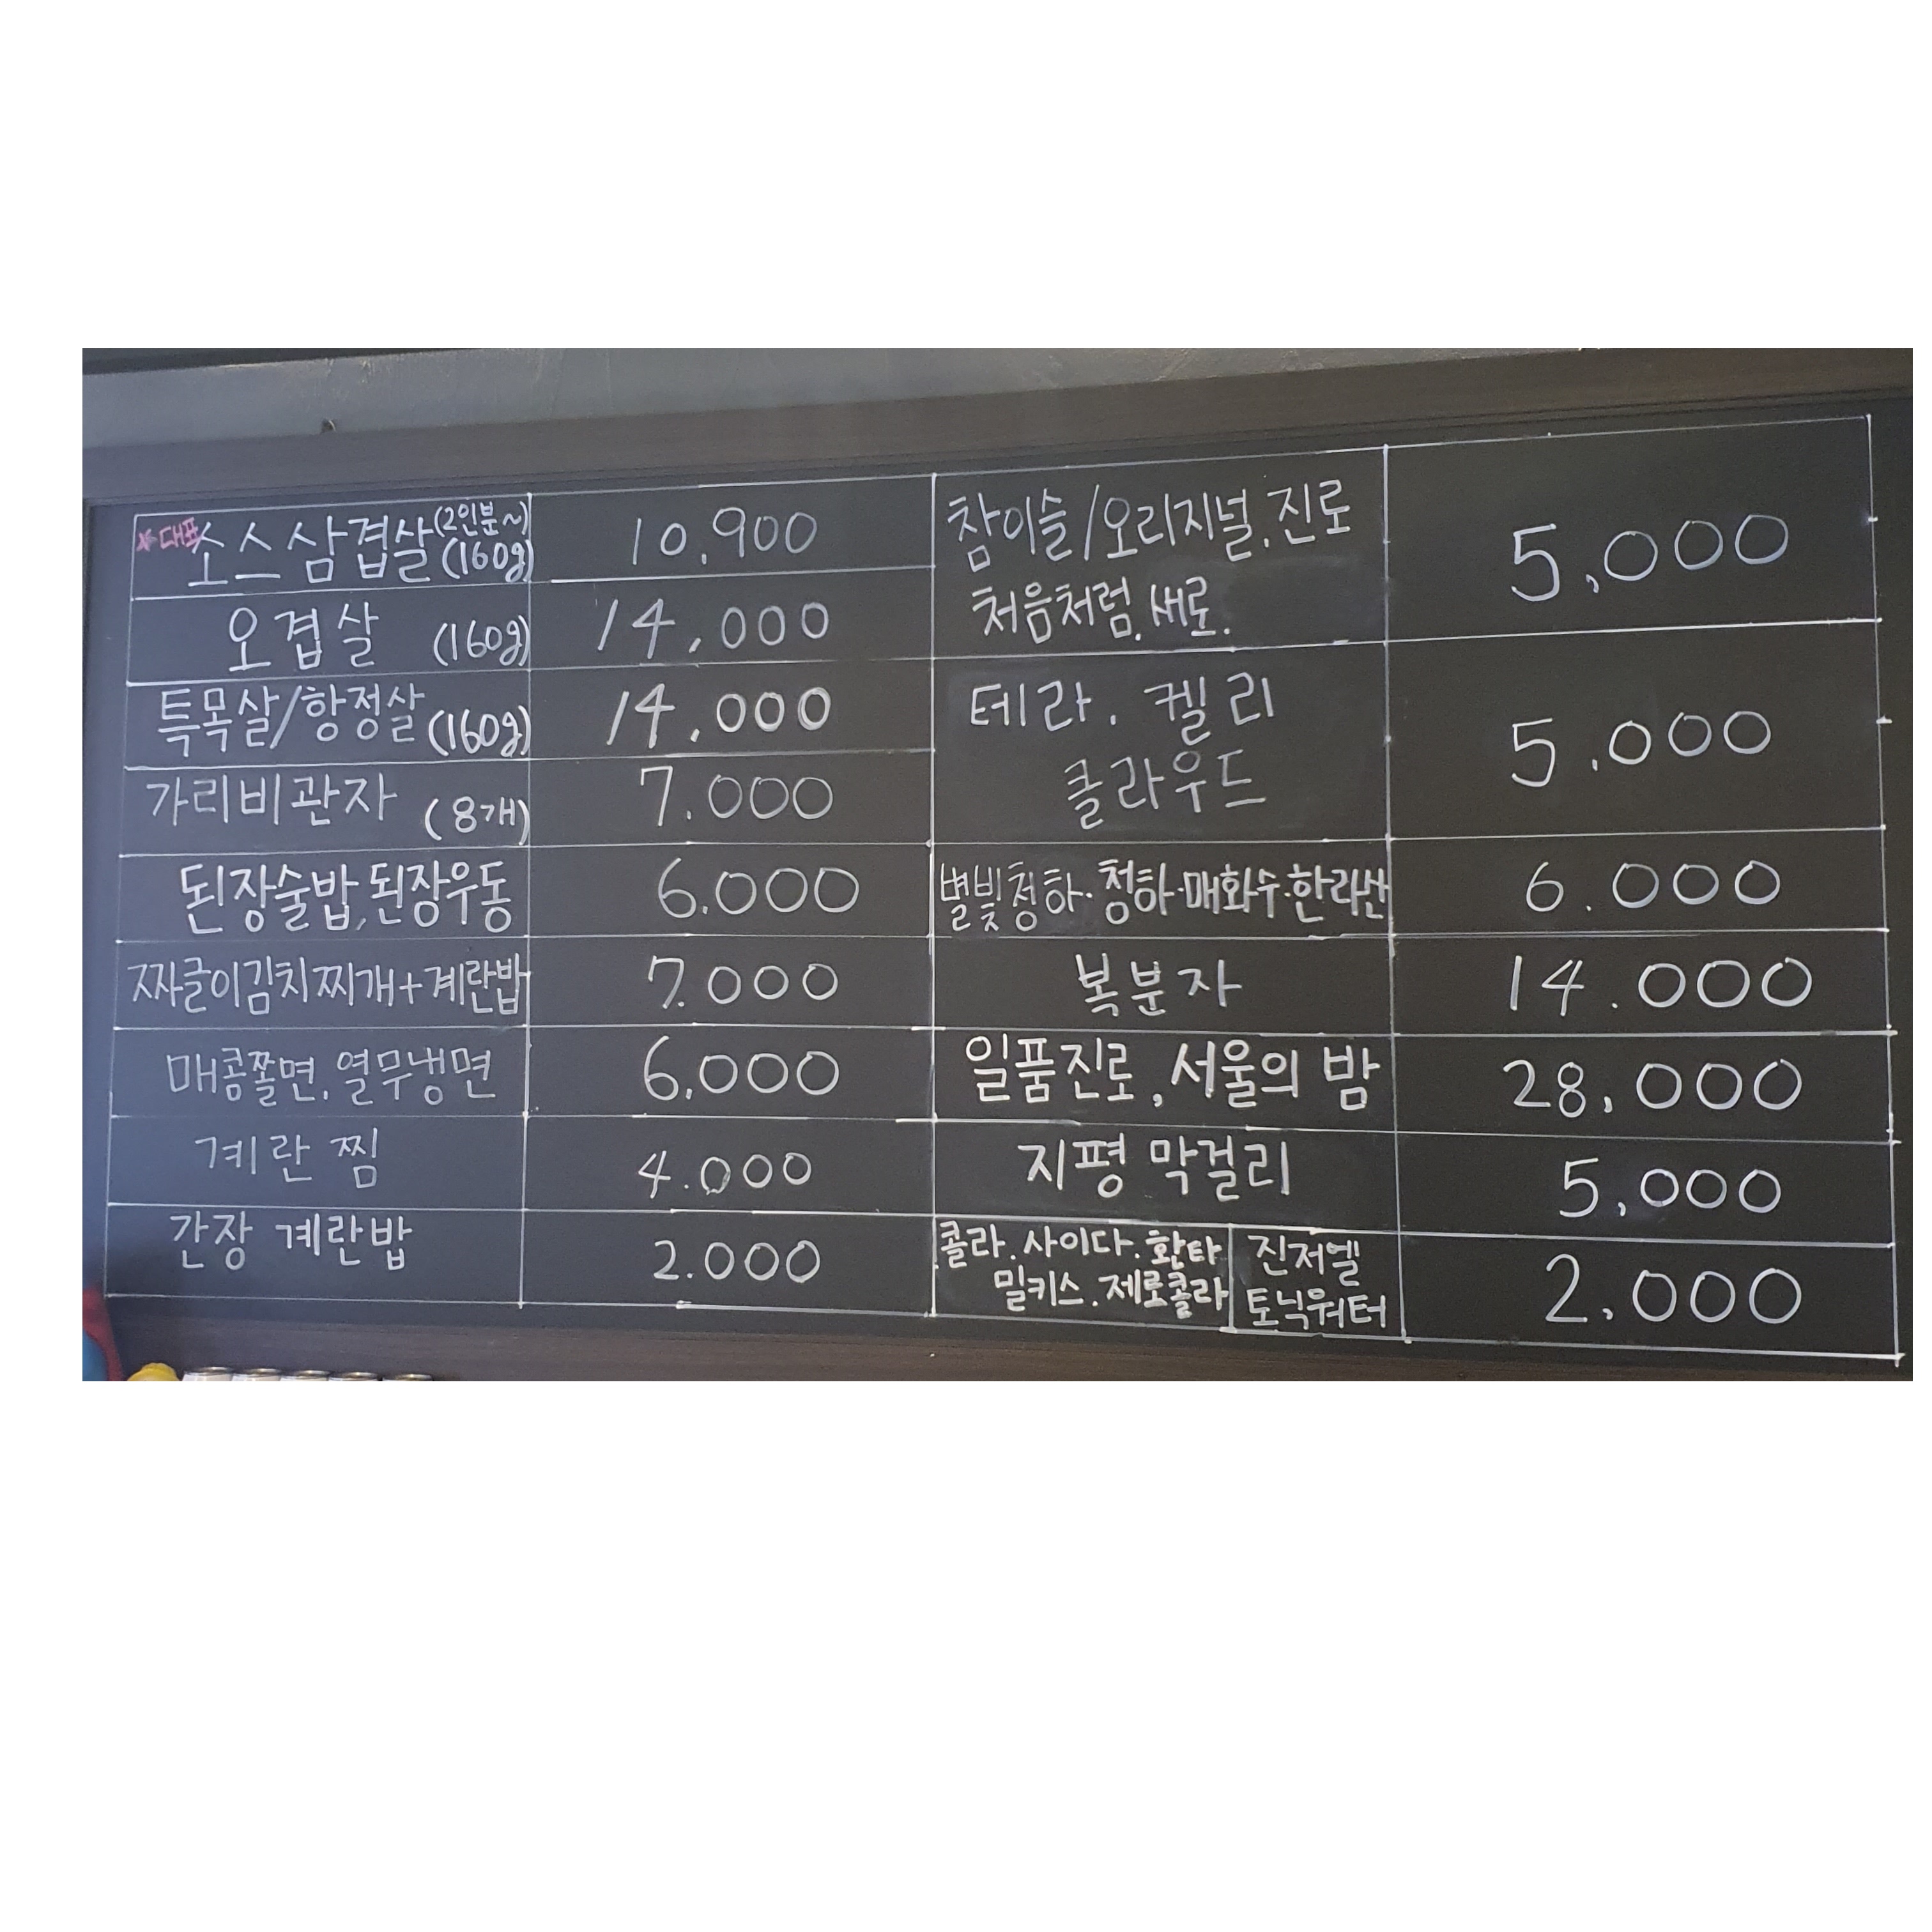 *대표 소스삼겹살 (2인분~) (160g) 10,900
오겹살 (160g) 14,000
특목살/항정살 (160g) 14,000
가리비관자 (8개) 7.000
된장술밥, 된장우동 6.000
짜글이김치찌개+계란밥 7.000
매콤쫄면. 열무냉면 6,000
계란찜 4.000
간장 계란밥 2.000
참이슬/오리지널. 진로
처음처럼. 새로.
5,000
테라. 켈리
클라우드
5.000
별빛청하·청하·매화수·한라산 6.000
복분자 14.000
일품진로, 서울의 밤 28,000
지평 막걸리 5,000
콜라. 사이다. 환타
밀키스. 제로콜라
진저엘
토닉워터
2,000